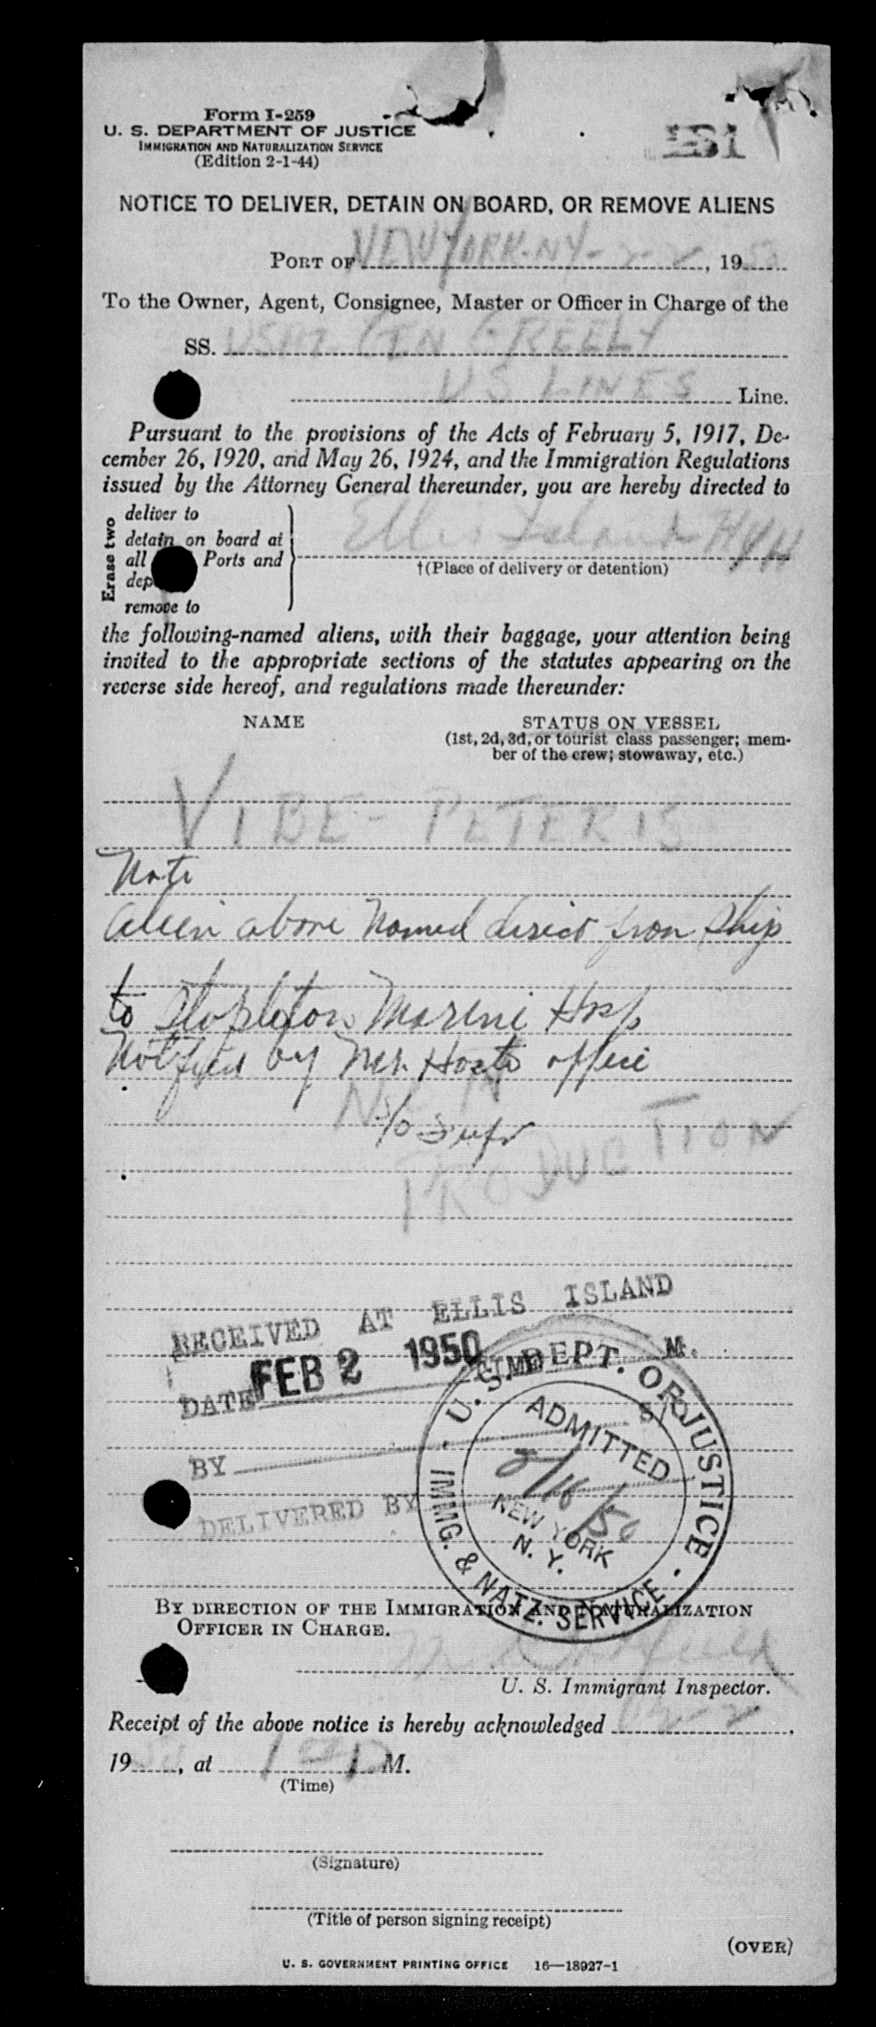 Form I-259
U. S. DEPARTMENT OF JUSTICE
IMMIGRATION AND NATURALIZATION SERVICE
(Edition 2-1-44)
NOTICE TO DELIVER, DETAIN ON BOARD, OR REMOVE ALIENS
PORT OF NEW YORK-NY-2-2, 1950
To the Owner, Agent, Consignee, Master or Officer in Charge of the
SS. USAT GEN GREELY
US LINES Line.
Pursuant to the provisions of the Acts of February 5, 1917, De-
cember 26, 1920, and May 26, 1924, and the Immigration Regulations
issued by the Attorney General thereunder, you are hereby directed to
Erase two
deliver to
detain on board at
all Ports and
dep
remove to
Ellis Island NYH
†(Place of delivery or detention)
the following-named aliens, with their baggage, your attention being
invited to the appropriate sections of the statutes appearing on the
reverse side hereof, and regulations made thereunder:
NAME STATUS ON VESSEL
(1st, 2d, 3d, or tourist class passenger; mem-
ber of the crew; stowaway, etc.)
VIBE - PETERIS
Note
Alien above named direct from ship
to Stapleton Marine Hosp
Notified by office
PRODUCTION
RECEIVED AT ELLIS ISLAND
DATE FEB 2 1950 TIME M.
BY
DELIVERED BY
U. S. DEPT. OF JUSTICE
IMMG. & NATZ. SERVICE
ADMITTED
/16/50
NEW YORK
N. Y.
BY DIRECTION OF THE IMMIGRATION AND NATURALIZATION
OFFICER IN CHARGE.
U. S. Immigrant Inspector.
Receipt of the above notice is hereby acknowledged 2-2,
19 50, at 1 P M.
(Time)
(Signature)
(Title of person signing receipt)
(OVER)
U. S. GOVERNMENT PRINTING OFFICE 16—18927-1